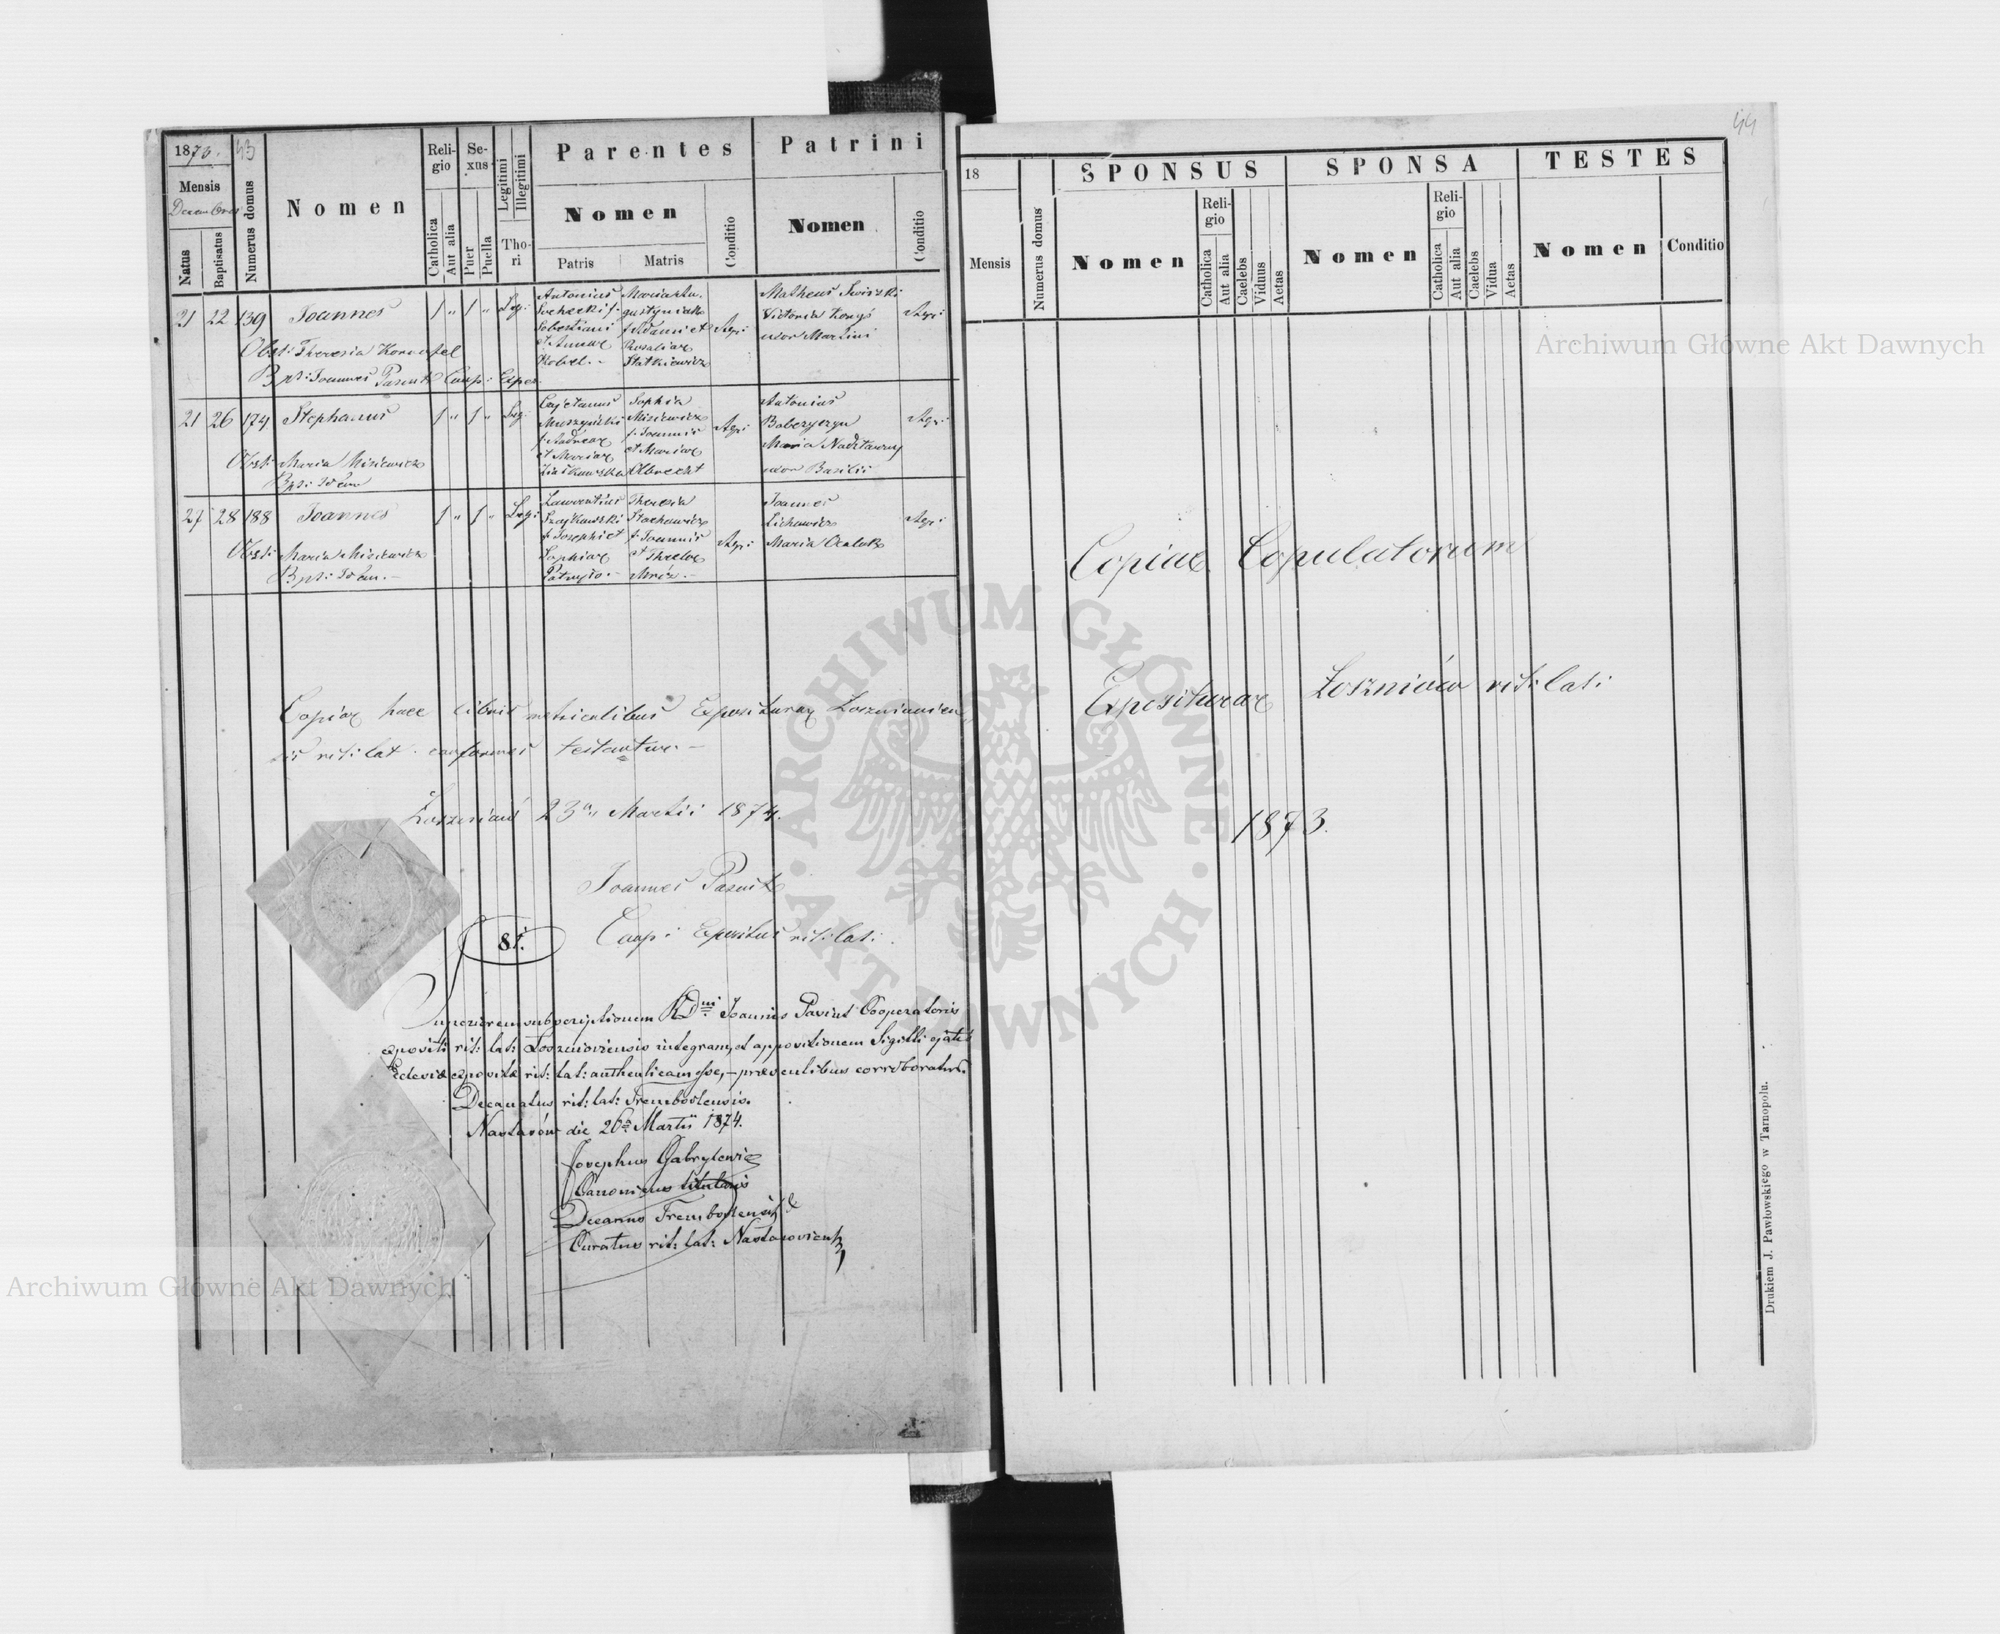 1873.
43
Mensis
Decembris
Natus
Baptisatus
Numerus domus
Nomen
Religio
Catholica
Aut alia
Sexus
Puer
Puella
Legitimi
Illegitimi
Thori
Parentes
Nomen
Patris
Matris
Conditio
Patrini
Nomen
Conditio
21 22 139 Joannes 1 " 1 " Leg:
Antonius
Sochecki f:
Sebastiani
et Annae
Kobel. -
Maria Au-
gustyniak
f. Adami et
Rosaliae
Statkiewicz
Agri:
Matheus Swiszki
Victoria Korys
uxor Martini
Agri:
Obst: Theresia
Bpt: Joannes Pasiut Coop: Expos.
21 26 174 Stephanus 1 " 1 " Leg:
Cajetanus
Muszyński
f: Andreae
et Mariae
Sophia
Misiewicz
f: Joannis
et Mariae
Olbrecht
Agri:
Antonius
Babczyszyn
Maria
uxor Basilii
Agri:
Obst: Maria Misiewicz
Bpt: Idem
27 28 188 Joannes 1 " 1 " Leg:
Laurentius
Szajkowski
f: Josephi et
Sophiae
Theresia
Stachowicz
f: Joannis
et Theclae
Mróz. -
Agri:
Joannes
Lichowicz
Maria
Agri:
Obst: Maria Misiewicz
Bpt: Idem. -
Copiae haec libris metricalibus Expositurae Loszniovien
sis rit: lat: conformes testantur. -
Łoszniów 23a Martii 1874.
Joannes Pasiut
Coop: Expositus rit: lat:
81.
Superiorem subscriptionem RDni Joannis Pasiut Cooperatoris
expositi rit: lat: Łoszniowiensis integram, et appositionem Sigilli ejatd
Ecclesiae expositae rit: lat: authenticam esse, - praesentibus corroboratur.
Decanatus rit: lat: Trembowlensis.
Nastasów die 26a Martii 1874.
Josephus Gabrylewicz
Canonicus titularis
Decanus Trembowlensis &
Curatus rit: lat: Nastasoviensis
44
18
Mensis
Numerus domus
SPONSUS
Nomen
Religio
Catholica
Aut alia
Caelebs
Viduus
Aetas
SPONSA
Nomen
Religio
Catholica
Aut alia
Caelebs
Vidua
Aetas
TESTES
Nomen
Conditio
Copiae Copulatorum
Expositurae Łoszniów rit: lat:
1873.
Drukiem J. Pawłowskiego w Tarnopolu.
Archiwum Główne Akt Dawnych
Archiwum Główne Akt Dawnych
ARCHIWUM GŁÓWNE · AKT DAWNYCH ·